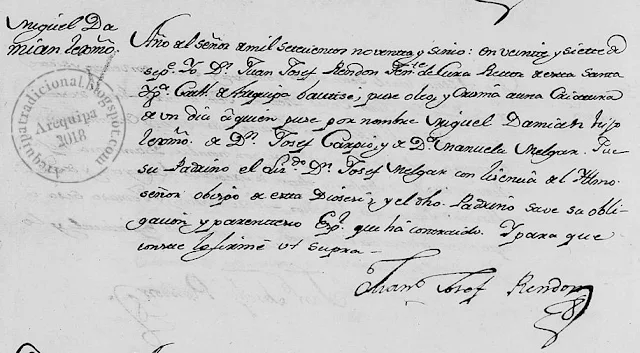 Miguel Da
mian Leg.mo
Año del señor de mil setecientos noventa y sinco: en veinte y siette de
sep.e Yo D.n Juan Josef Rendon Then.te de Cura Rector de esta Santa
Yg.a Cath.l de Arequipa bautisé, puse oleo, y Crisma a una Criatura
de un dia á quien puse por nombre Miguel Damian hijo
de D.n Josef Carpio, y de D.a Manuela Melgar. Fue
su Padrino el D.n Josef Melgar con lisencia del Yllmo
señor obispo de esta Diosesis, y el dho. Padrino save su obli-
gacion, y parentesco Esp.l que há contraido. Y para que
conste lo firmé ut supra
Juan Josef Rendon
arequipatradicional.blogspot.com
Arequipa
2018